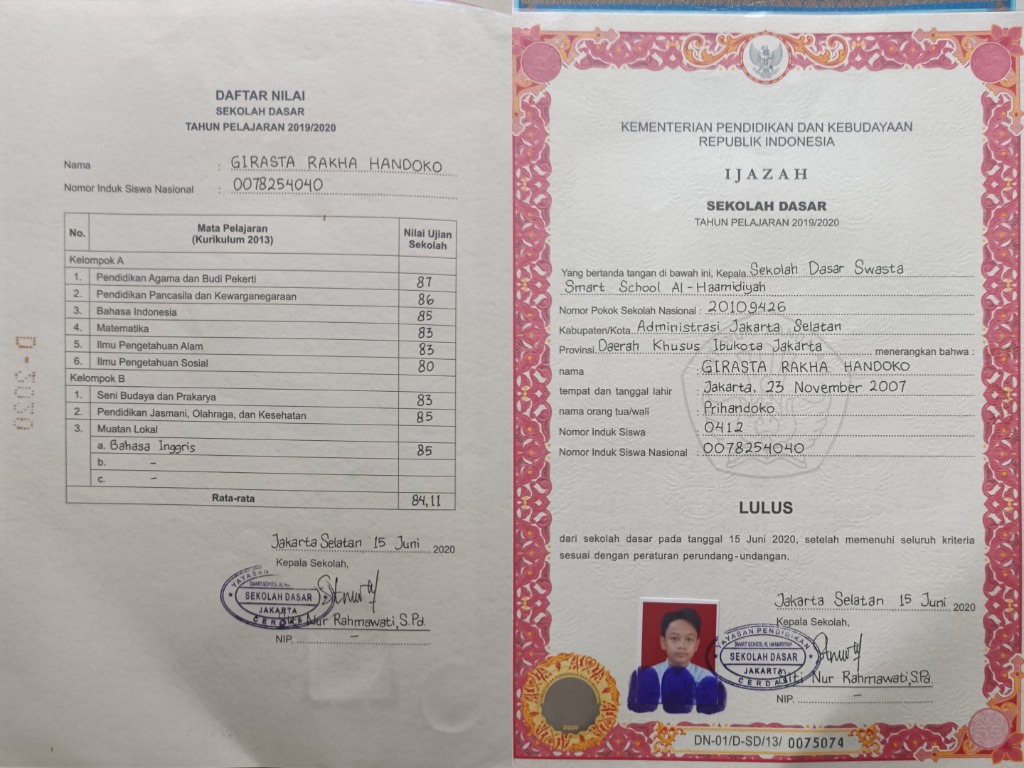 DAFTAR NILAI
SEKOLAH DASAR
TAHUN PELAJARAN 2019/2020
Nama : GIRASTA RAKHA HANDOKO
Nomor Induk Siswa Nasional : 0078254040
No. Mata Pelajaran (Kurikulum 2013) Nilai Ujian Sekolah
Kelompok A
1. Pendidikan Agama dan Budi Pekerti 87
2. Pendidikan Pancasila dan Kewarganegaraan 86
3. Bahasa Indonesia 85
4. Matematika 83
5. Ilmu Pengetahuan Alam 83
6. Ilmu Pengetahuan Sosial 80
Kelompok B
1. Seni Budaya dan Prakarya 83
2. Pendidikan Jasmani, Olahraga, dan Kesehatan 85
3. Muatan Lokal
a. Bahasa Inggris 85
b. -
c. -
Rata-rata 84,11
Jakarta Selatan 15 Juni 2020
Kepala Sekolah,
YAYASAN
SEKOLAH DASAR
JAKARTA
Nur Rahmawati, S.Pd.
NIP. -
KEMENTERIAN PENDIDIKAN DAN KEBUDAYAAN
REPUBLIK INDONESIA
IJAZAH
SEKOLAH DASAR
TAHUN PELAJARAN 2019/2020
Yang bertanda tangan di bawah ini, Kepala Sekolah Dasar Swasta
Smart School Al-Haamidiyah
Nomor Pokok Sekolah Nasional : 20109426
Kabupaten/Kota Administrasi Jakarta Selatan
Provinsi Daerah Khusus Ibukota Jakarta menerangkan bahwa :
nama : GIRASTA RAKHA HANDOKO
tempat dan tanggal lahir : Jakarta, 23 November 2007
nama orang tua/wali : Prihandoko
Nomor Induk Siswa : 0412
Nomor Induk Siswa Nasional : 0078254040
LULUS
dari sekolah dasar pada tanggal 15 Juni 2020, setelah memenuhi seluruh kriteria
sesuai dengan peraturan perundang-undangan.
Jakarta Selatan 15 Juni 2020
Kepala Sekolah,
YAYASAN PENDIDIKAN
SMART SCHOOL AL HAAMIDIYAH
SEKOLAH DASAR
JAKARTA
CERDAS
Siti Nur Rahmawati, S.Pd.
NIP. -
2020
DN-01/D-SD/13/ 0075074